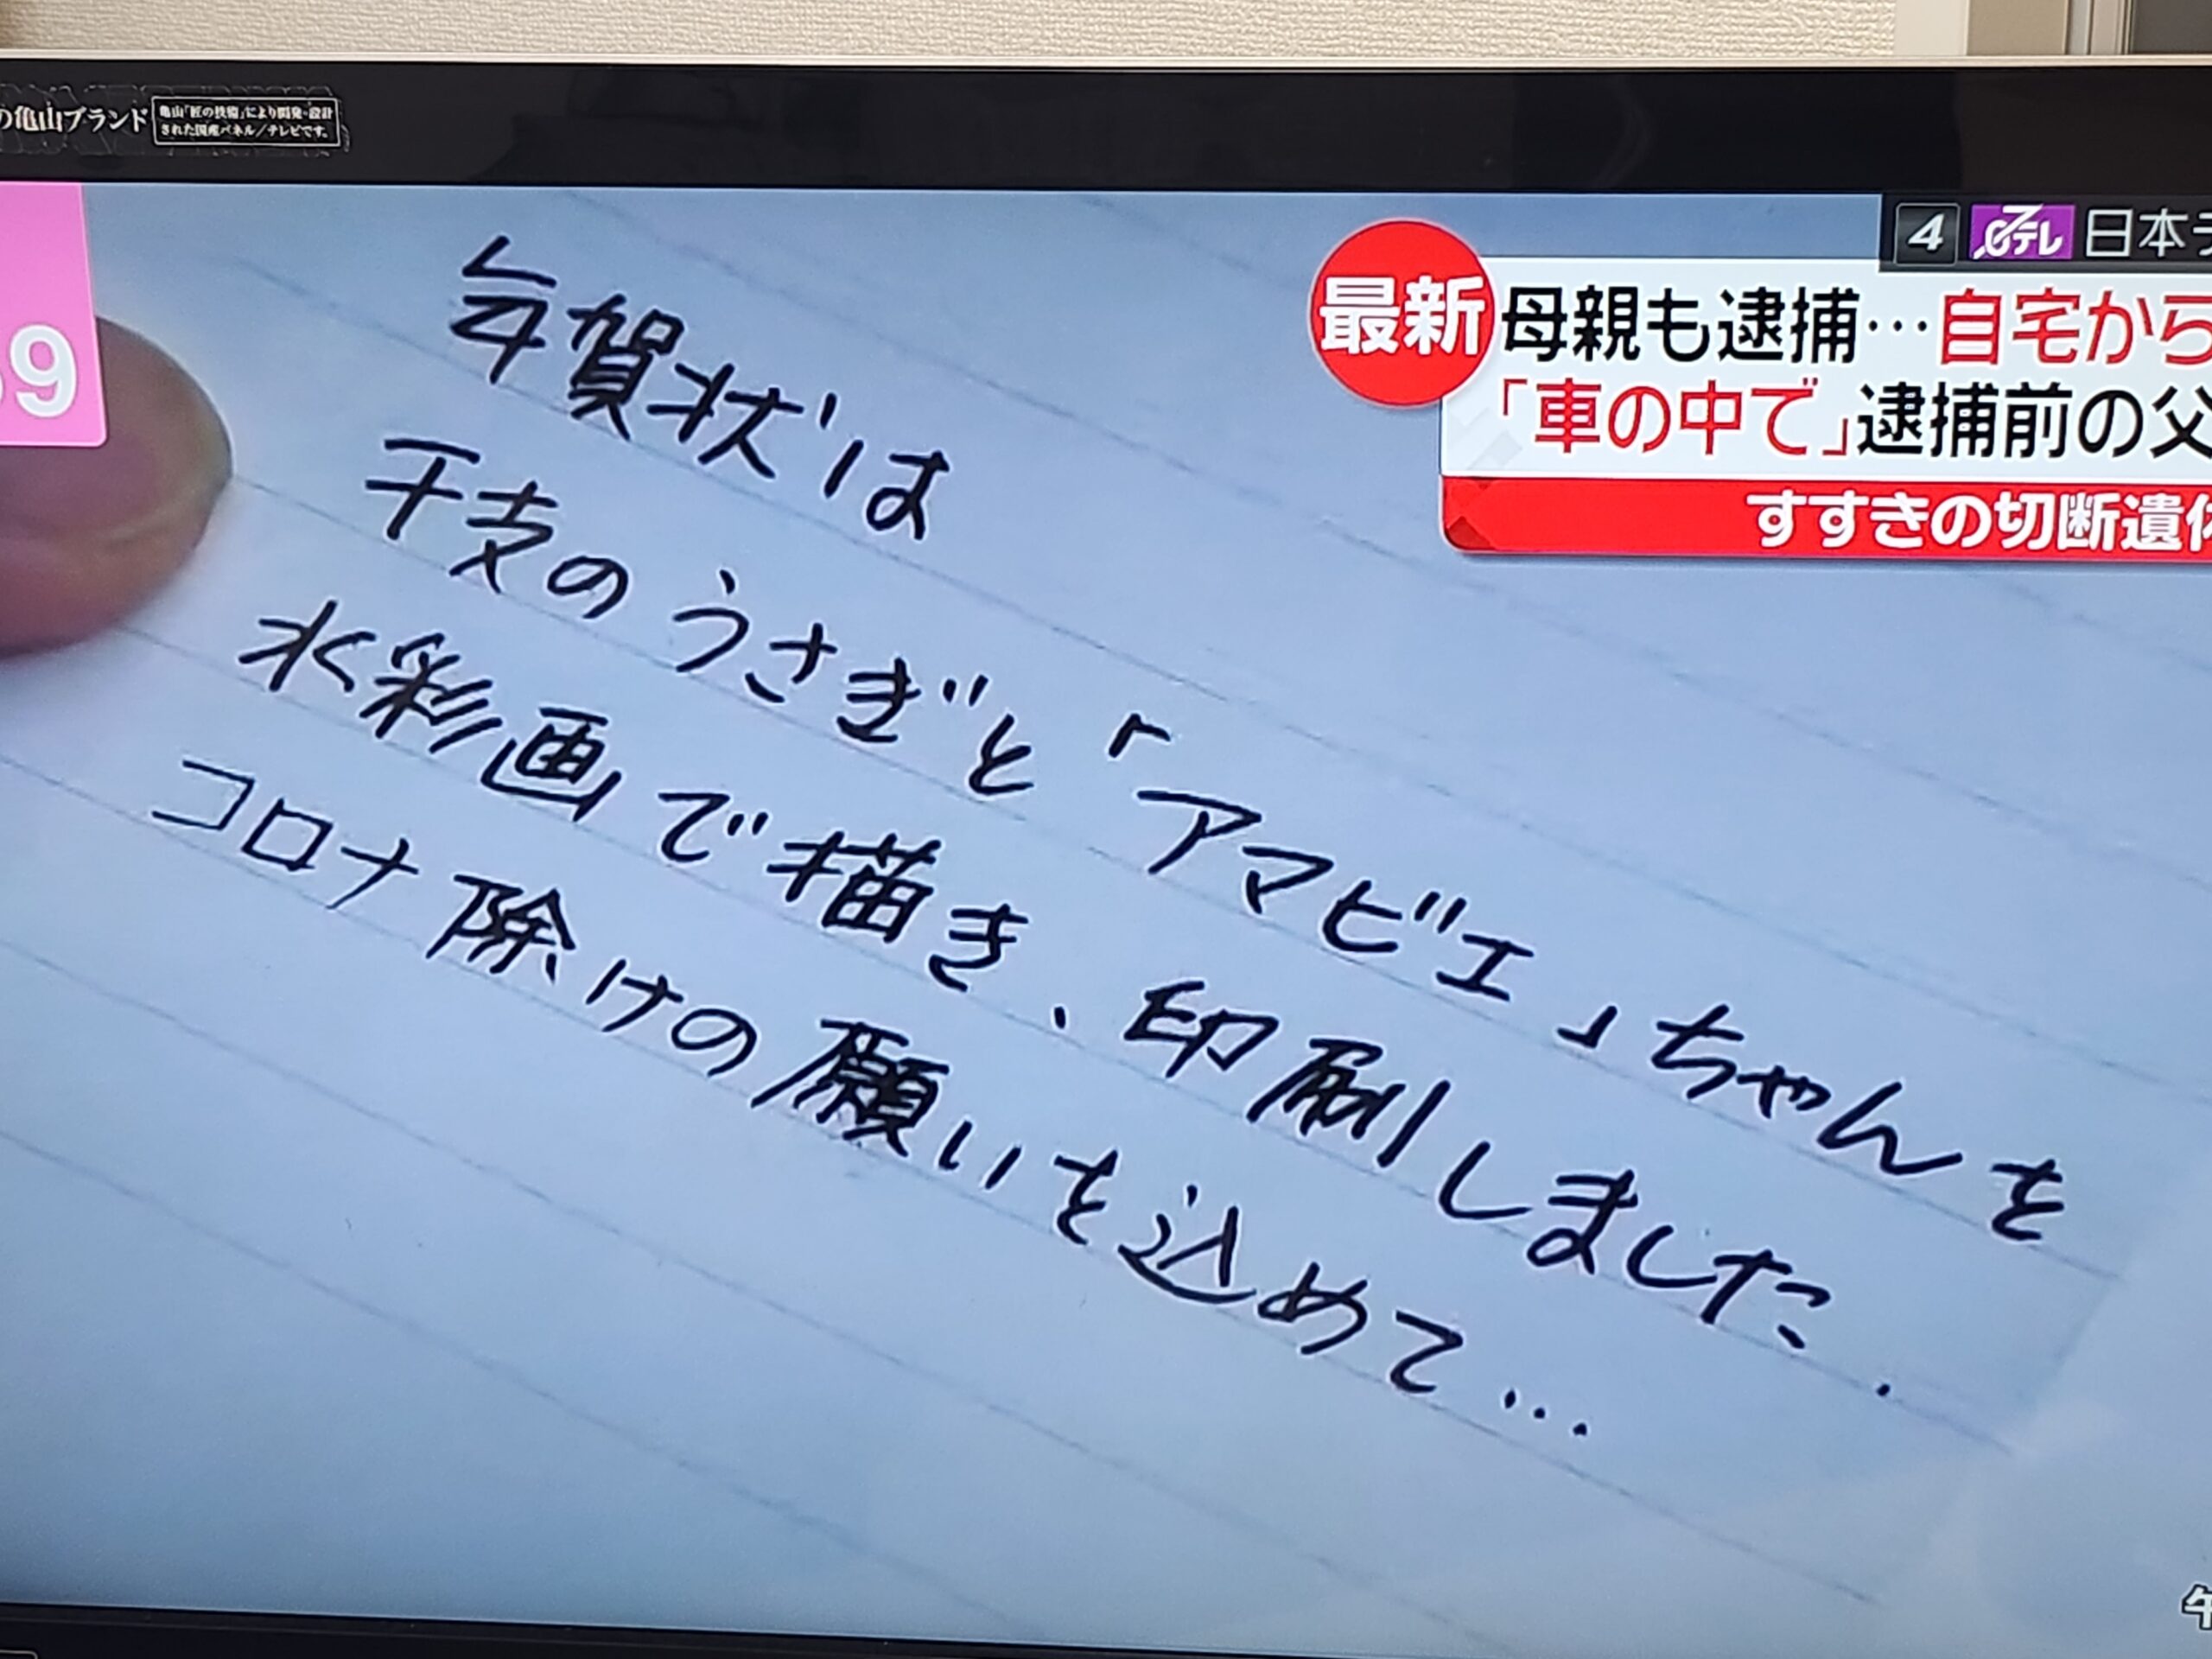 の亀山ブランド
亀山「匠の技術」により開発・設計
された国産パネル/テレビです。
9
4 日テレ 日本テ
最新
母親も逮捕…自宅から
「車の中で」逮捕前の父
すすきの切断遺体
年賀状は
干支のうさぎと「アマビエ」ちゃんを
水彩画で描き、印刷しました.
コロナ除けの願いを込めて…
午